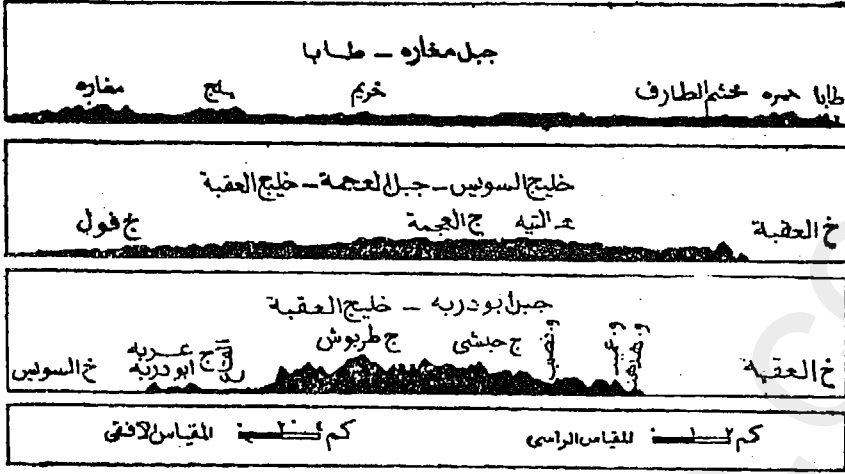 جبل مغاره - طابا
طابا حمره مخشم الطارف خريم يلج مغاره
خليج السويس - جبل العجمة - خليج العقبة
خ العقبة ج التيه ج العجمة ج فول
جبل ابودربه - خليج العقبة
خ العقبة و نصب ج حبشى ج طربوش القاع ج عربه ابودربه خ السويس
كم ٢ ١ المقياس الراسى كم ٤ ٢ المقياس الافقى